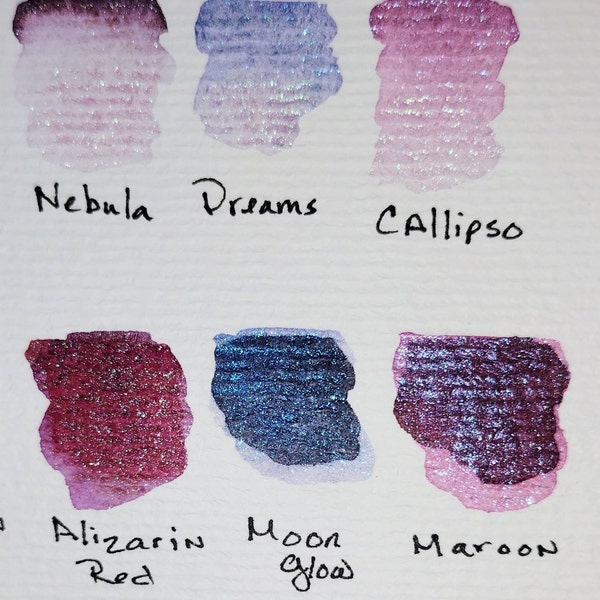 Nebula Dreams CAllipso
Alizarin Moon Maroon
Red glow